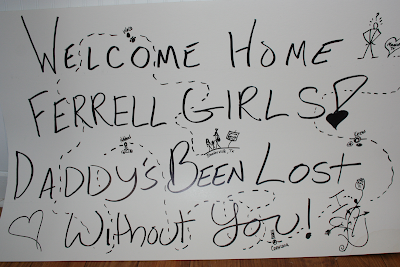 WELCOME HOME
FERRELL GIRLS!
DADDY'S BEEN LOST
Without You!